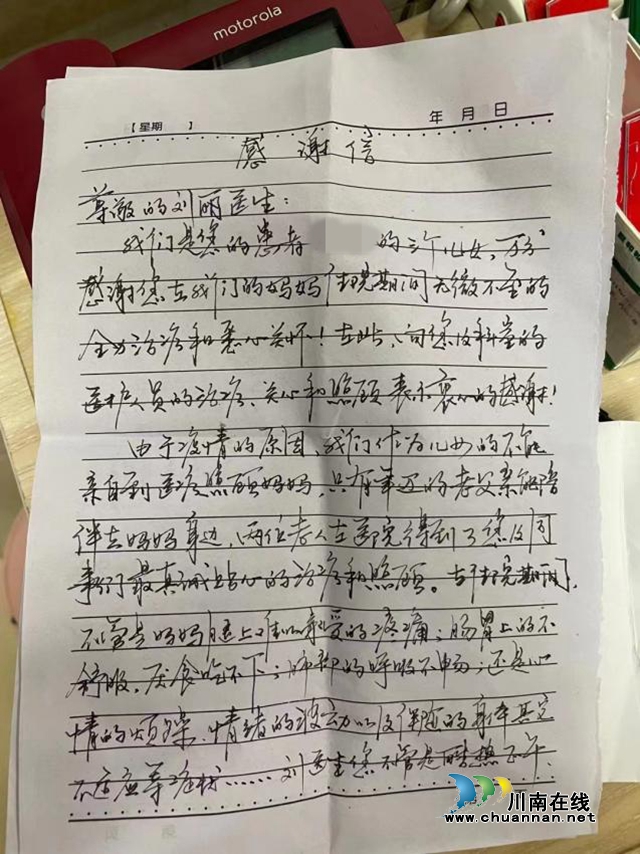 motorola
【星期 】 年 月 日
感谢信
尊敬的刘丽医生：
我们是您的患者 的三个儿女，万分
感谢您在我们的妈妈住院期间无微不至的
全力治疗和悉心关怀！在此，向您及科室的
医护人员的治疗、关心和照顾表示衷心的感谢！
由于疫情的原因，我们作为儿女的不能
亲自到医院照顾妈妈，只有年迈的老父亲能陪
伴在妈妈身边，两位老人在医院得到了您及同
事们最真诚贴心的治疗和照顾。在住院期间，
不管是妈妈腿上难以承受的疼痛；肠胃上的不
舒服，厌食吃不下；肺部的呼吸不畅；还是心
情的烦躁、情绪的波动以及伴随的身体其它
不适应等症状……刘医生您不管是酷热正午、
川南在线
www.chuannan.net